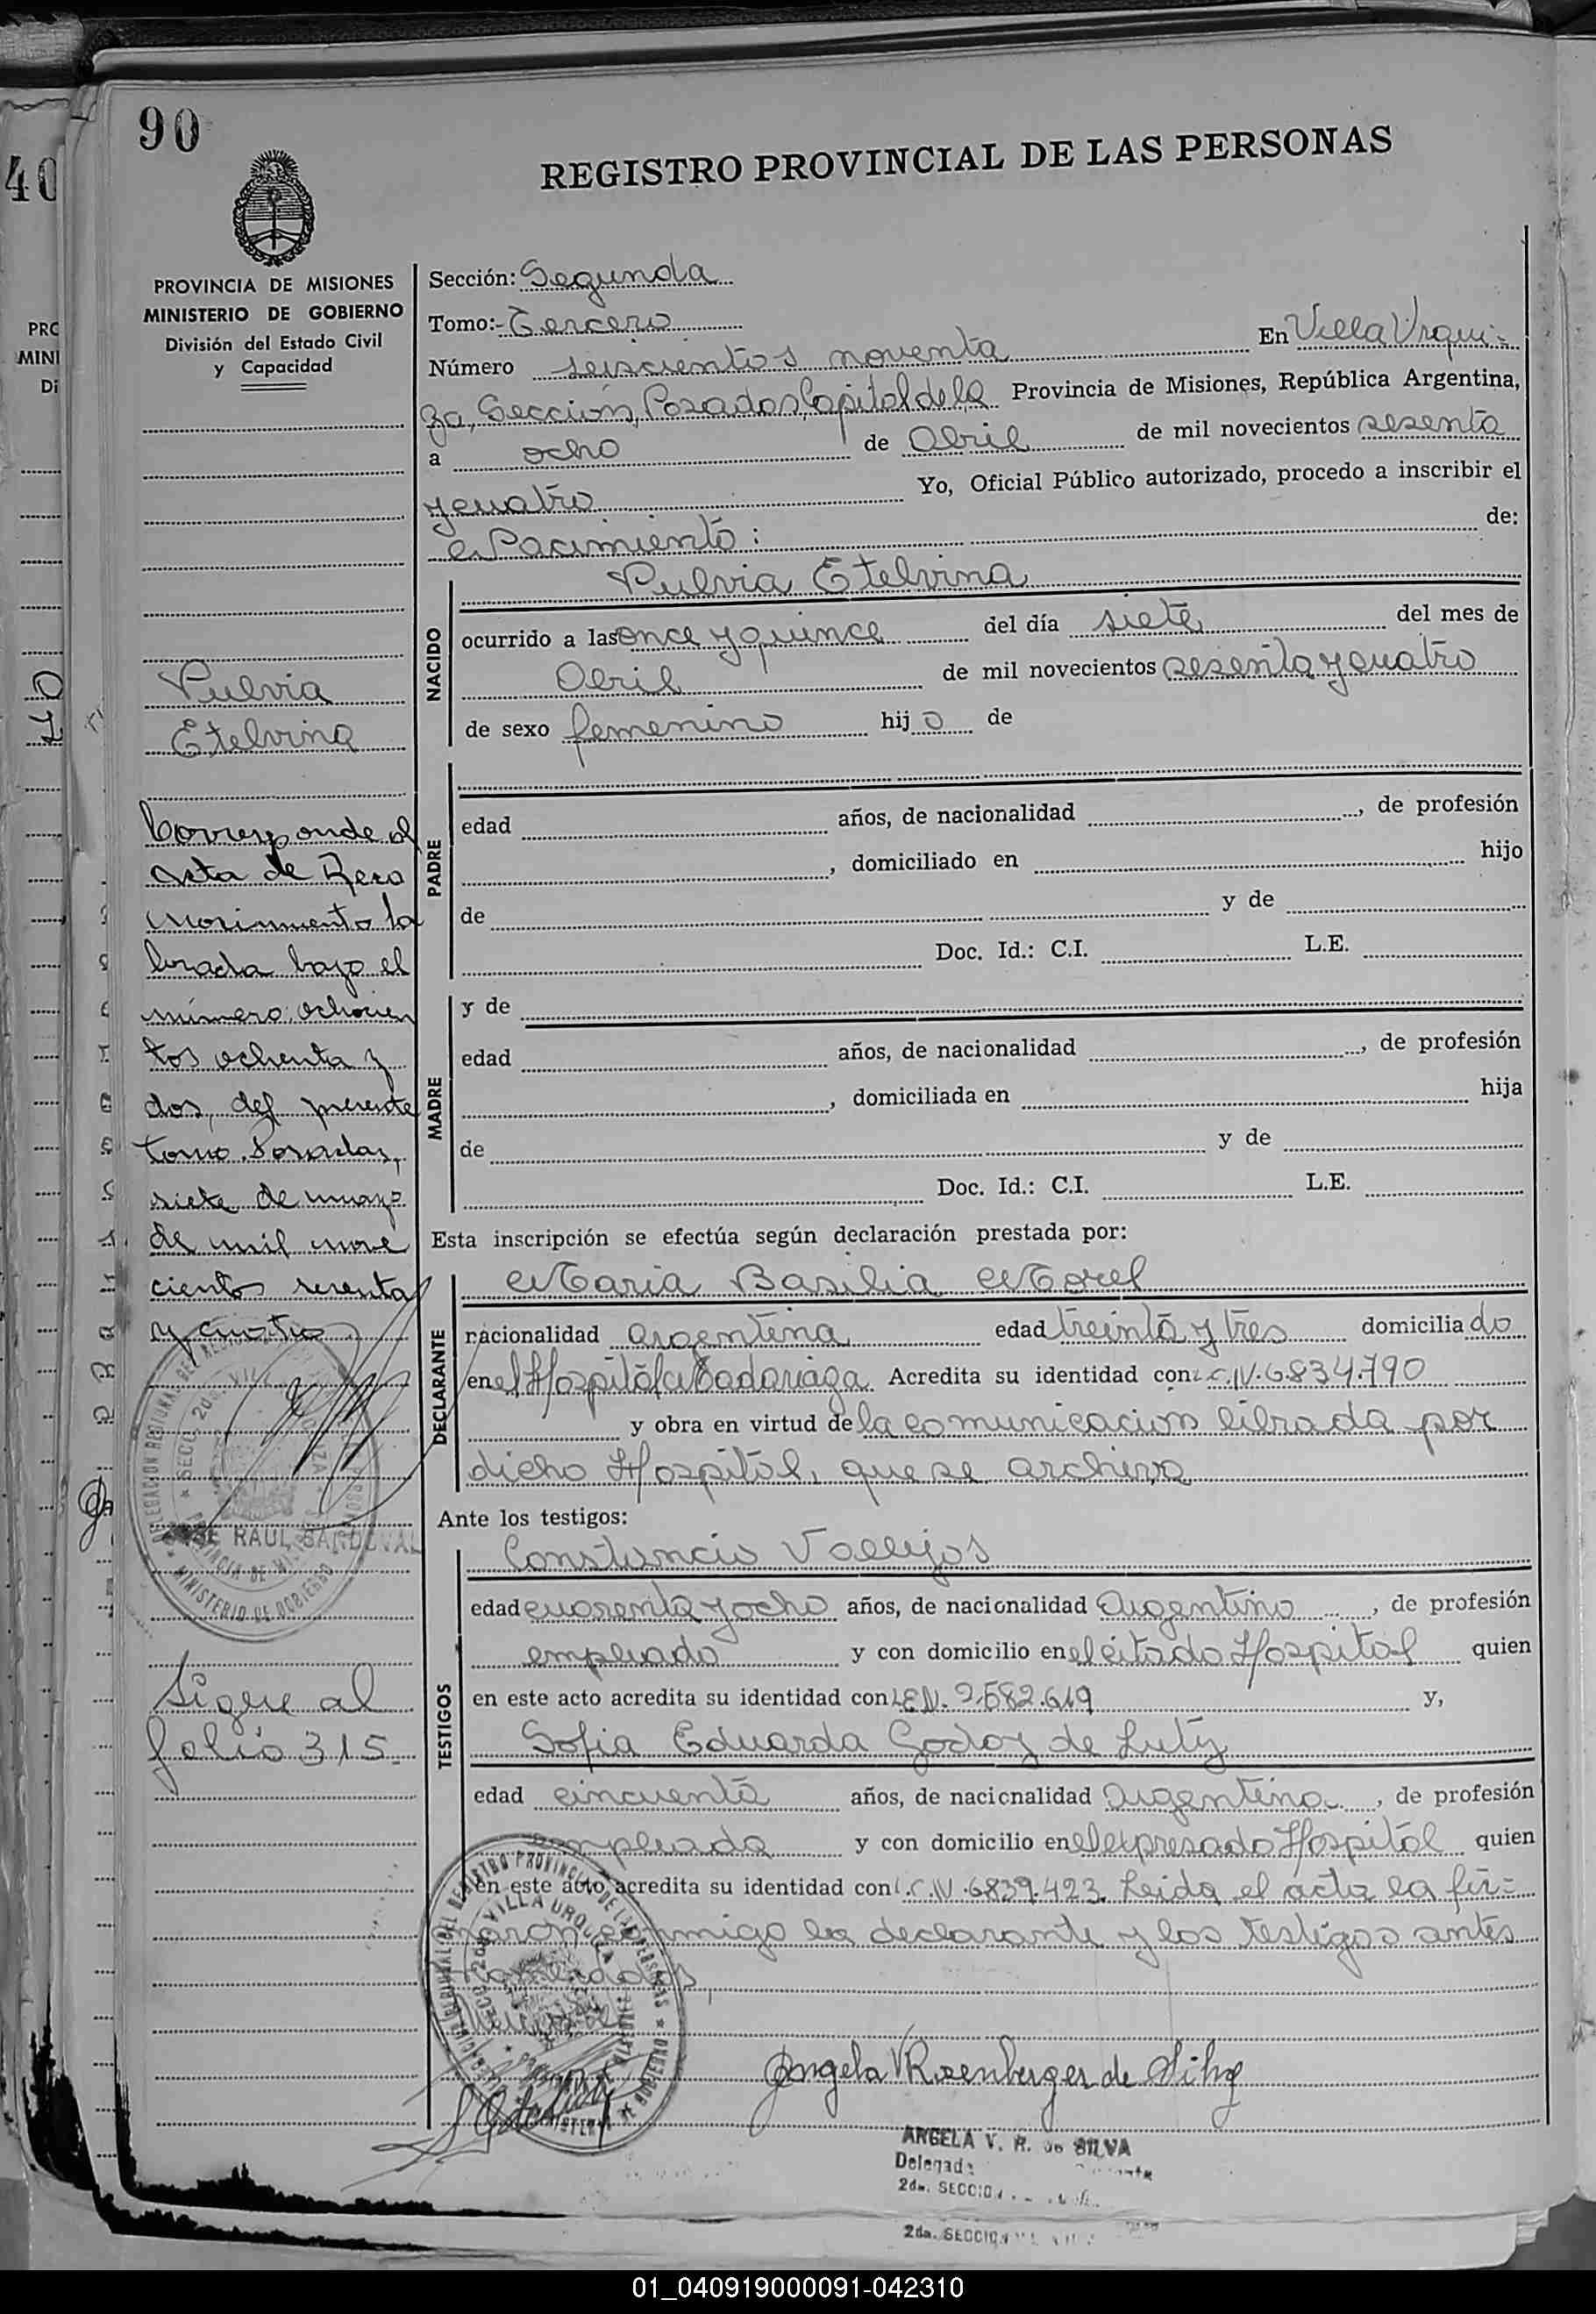 90
40
REGISTRO PROVINCIAL DE LAS PERSONAS
PROVINCIA DE MISIONES
MINISTERIO DE GOBIERNO
División del Estado Civil
y Capacidad
PRC
MINI
Di
Sección: Segunda
Tomo:- Tercero
Número seiscientos noventa En Villa Urqui-
za, Sección, Posadas, Capital de la Provincia de Misiones, República Argentina,
a ocho de Abril de mil novecientos sesenta
y cuatro Yo, Oficial Público autorizado, procedo a inscribir el
Nacimiento: de:
NACIDO
Fulvia Etelvina
ocurrido a las once y quince del día siete del mes de
Abril de mil novecientos sesenta y cuatro
de sexo femenino hija de
PADRE
edad años, de nacionalidad , de profesión
, domiciliado en hijo
de y de
Doc. Id.: C.I. L.E.
MADRE
y de
edad años, de nacionalidad , de profesión
, domiciliada en hija
de y de
Doc. Id.: C.I. L.E.
Esta inscripción se efectúa según declaración prestada por:
DECLARANTE
Maria Basilia Morel
nacionalidad argentina edad treinta y tres domiciliado
en el Hospital Madariaga. Acredita su identidad con: C.IV.6.834.790
y obra en virtud de la comunicacion librada por
dicho Hospital, que se archiva
Ante los testigos:
TESTIGOS
Constancio Vallejos
edad cuarenta y ocho años, de nacionalidad Argentino , de profesión
empleado y con domicilio en el citado Hospital quien
en este acto acredita su identidad con L.E.N. 2.582.619 y,
Sofia Eduarda Godoy de
edad cincuenta años, de nacionalidad Argentina , de profesión
empleada y con domicilio en el expresado Hospital quien
en este acto acredita su identidad con L.C.N.6839.423. Leida el acta la fir=
maron conmigo la declarante y los testigos antes
nombrados
Fulvia
Etelvina
Corresponde al
Acta de Reco
nocimiento la
brada bajo el
número: ochocien
tos ochenta y
dos, del presente
tomo. Posadas,
siete de mayo
de mil nove
cientos sesenta
y cuatro
RAUL SANDOVAL
Sigue al
folio 315.
Angela V Rosenberger de Silva
ANGELA V. R. de SILVA
2da. SECCION
2da. SECCION
01_040919000091-042310